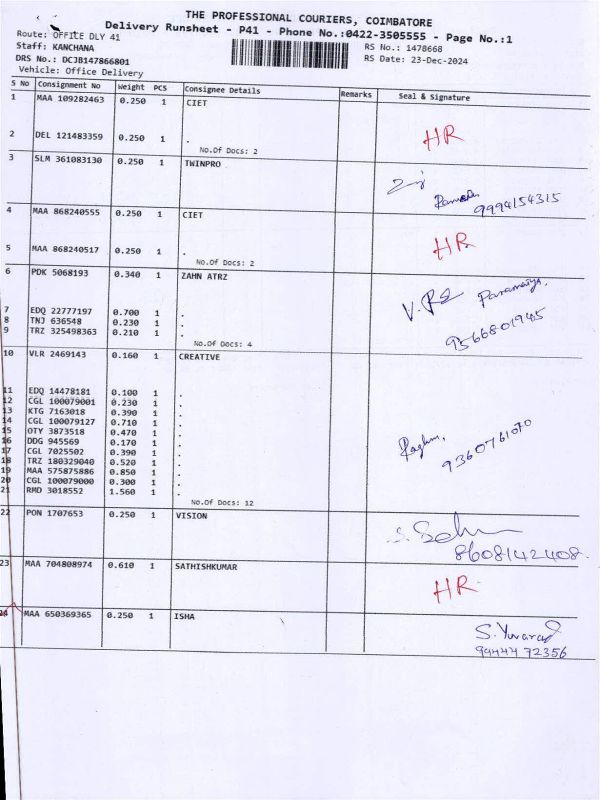 THE PROFESSIONAL COURIERS, COIMBATORE
Delivery Runsheet - P41 - Phone No.:0422-3505555 - Page No.:1
Route: OFFICE DLY 41
RS No.: 1478668
Staff: KANCHANA
RS Date: 23-Dec-2024
DRS No.: DCJB147866801
Vehicle: Office Delivery
S No Consignment No Weight PCS Consignee Details Remarks Seal & Signature
1 MAA 109282463 0.250 1 CIET
HR
2 DEL 121483359 0.250 1 .
No.Of Docs: 2
3 SLM 361083130 0.250 1 TWINPRO
9994154315
4 MAA 868240555 0.250 1 CIET
HR
5 MAA 868240517 0.250 1 .
No.Of Docs: 2
6 PDK 5068193 0.340 1 ZAHN ATRZ
7 EDQ 22777197 0.700 1 .
8 TNJ 636548 0.230 1 .
9 TRZ 325498363 0.210 1 .
9566801945
No.Of Docs: 4
10 VLR 2469143 0.160 1 CREATIVE
11 EDQ 14478181 0.100 1 .
12 CGL 100079001 0.230 1 .
13 KTG 7163018 0.390 1 .
14 CGL 100079127 0.710 1 .
15 OTY 3873518 0.470 1 .
16 DDG 945569 0.170 1 .
17 CGL 7025502 0.390 1 .
18 TRZ 180329040 0.520 1 .
19 MAA 575875886 0.850 1 .
20 CGL 100079000 0.300 1 .
21 RMD 3018552 1.560 1 .
9360761070
No.Of Docs: 12
22 PON 1707653 0.250 1 VISION
8608142408
23 MAA 704808974 0.610 1 SATHISHKUMAR
HR
24 MAA 650369365 0.250 1 ISHA
S. Yuvaraj
94444 72356